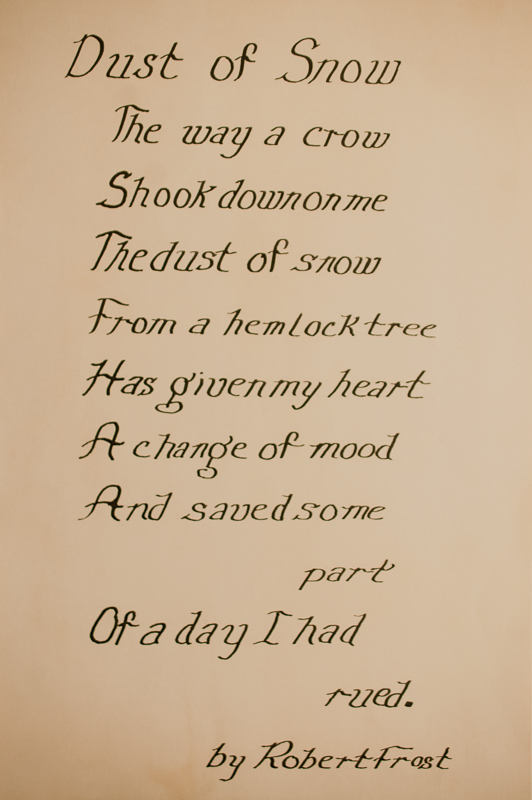 Dust of Snow
The way a crow
Shook down on me
The dust of snow
From a hemlock tree
Has given my heart
A change of mood
And saved some
part
Of a day I had
rued.
by Robert Frost